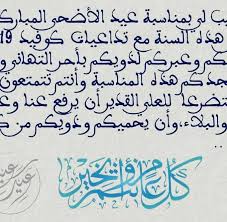 يب لي بمناسبة عيد الأضحى المبارك
هذه السنة مع تداعيات كوفيد 19
كم وعبركم لذويكم بأحر التهاني و
جدكم هذه المناسبة وأنتم تتمتعون
متضرعا للعلي القدير أن يرفع عنا و
والبلاء، وأن يحميكم وذويكم من ك
..
كل عام وأنتم بخير
عيد